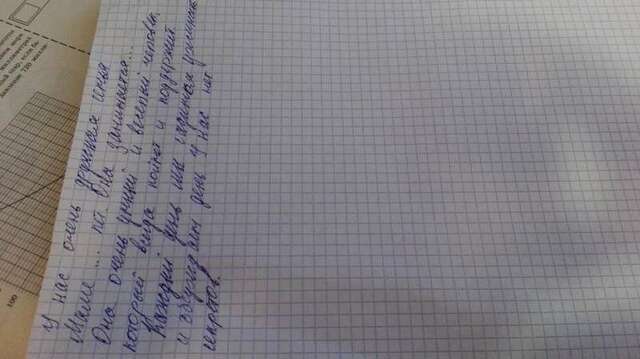 У нас очень дружная семья
Маме ... лет. Она занимается...
Она очень умный и весёлый человек,
который всегда поймёт и поддержит
Каждый день мы садимся ужинать
и обсуждаем день У нас нет
секретов.
100